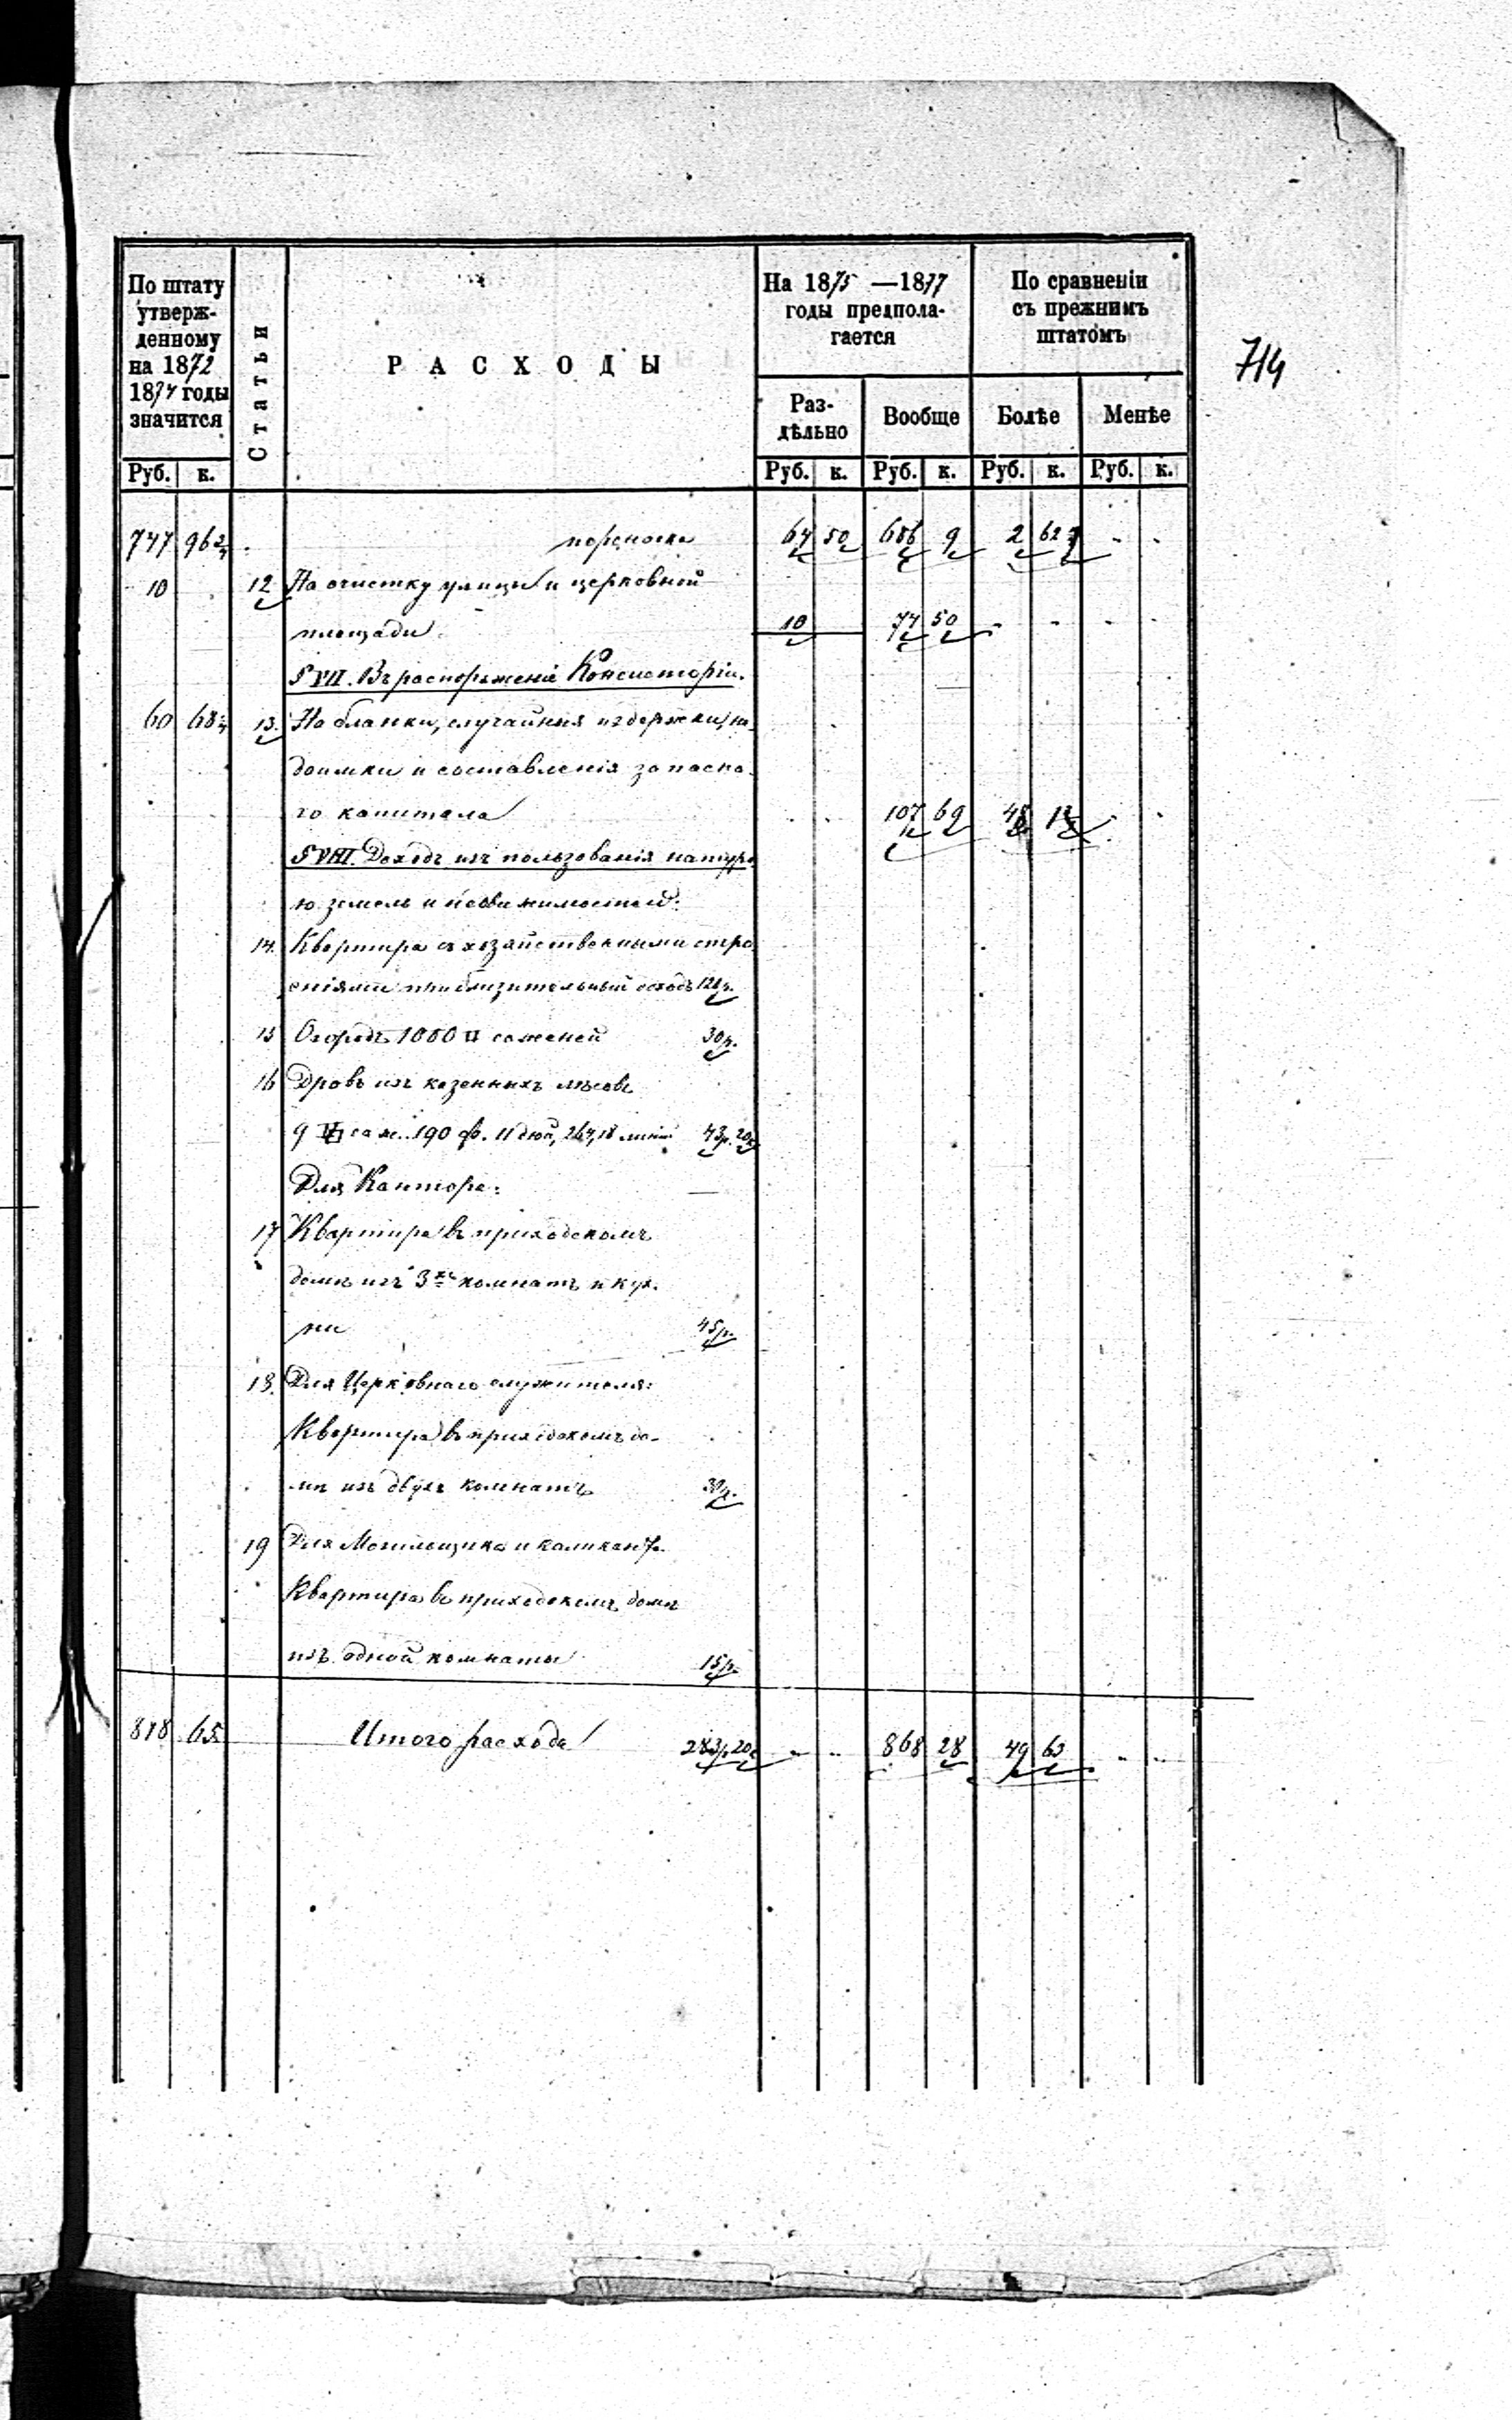 714
По штату утверж-денному на 1872 1874 годы значится | Статьи | РАСХОДЫ | На 1875—1877 годы предпола-гается | По сравненіи съ прежнимъ штатомъ
Раз-дѣльно | Вообще | Болѣе | Менѣе
Руб. | к. | Руб. | к. | Руб. | к. | Руб. | к. | Руб. | к.
747 | 96 2/4 | переноска | 64 | 50 | 686 | 9 | 2 | 62 | - | -
10 | 12 | На очистку улицы и церковной
площади. | 10 | 74 | 50 | - | - | - | -
§ VII. Въ распоряженіе Консисторіи.
60 | 68 | 13. | На бланки, случайныя издержки, не-
доимки и составленія запасна-
го капитала | 107 | 69 | 48 | - | -
§ VIII. Доходъ изъ пользованія натуро-
ю земель и недвижимостей:
14. | Квартира съ хозяйственными стро-
еніями приблизительный доходъ 120 р.
15 | Огородъ 1000 □ саженей 30 р.
16 | Дровъ изъ казенныхъ лѣсовъ
9 саж. 190 ф. 11 дюй, 264,18 линій 43 р. 20 к
Для Кантора:
17 | Квартира въ приходскомъ
домѣ изъ 3хъ комнатъ и кух-
ни 45 р.
18. | Для Церковнаго служителя:
Квартира въ приходскомъ до-
мѣ изъ двухъ комнатъ 30 р.
19 | Для Могильщика и каликанта
Квартира въ приходскомъ домѣ
изъ одной комнаты 15 р.
818 | 65 | Итого расхода 283 р. 20 к | - | - | 868 | 28 | 49 | 63 | - | -